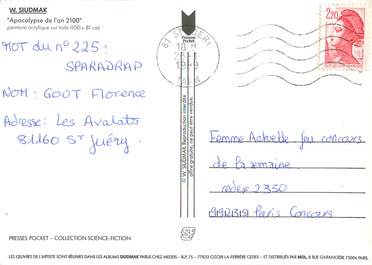 W. SIUDMAK
"Apocalypse de l'an 2100"
peinture acrylique sur toile (100 x 81 cm)
MOT du n° 225 :
SPARADRAP
NOM : GOUT Florence
Adresse : Les Avalats
81160 St Juéry.
PRESSES POCKET - COLLECTION SCIENCE-FICTION
Presses Pocket
© W. SIUDMAK Reproduction interdite
offerte gratuite, ne peut être vendue.
81 ST JUERY
18 H
1989
TARN
2,20
Femme Actuelle jeu concours
de la semaine
cedex 2350
Paris Concours
LES ŒUVRES DE L'ARTISTE SONT RÉUNIES DANS LES ALBUMS SIUDMAK PARUS CHEZ MEDIOS - B.P. 75 - 77833 OZOIR-LA-FERRIÈRE CEDEX - ET DISTRIBUÉS PAR MDL, 8 RUE GARANCIÈRE 75006 PARIS.